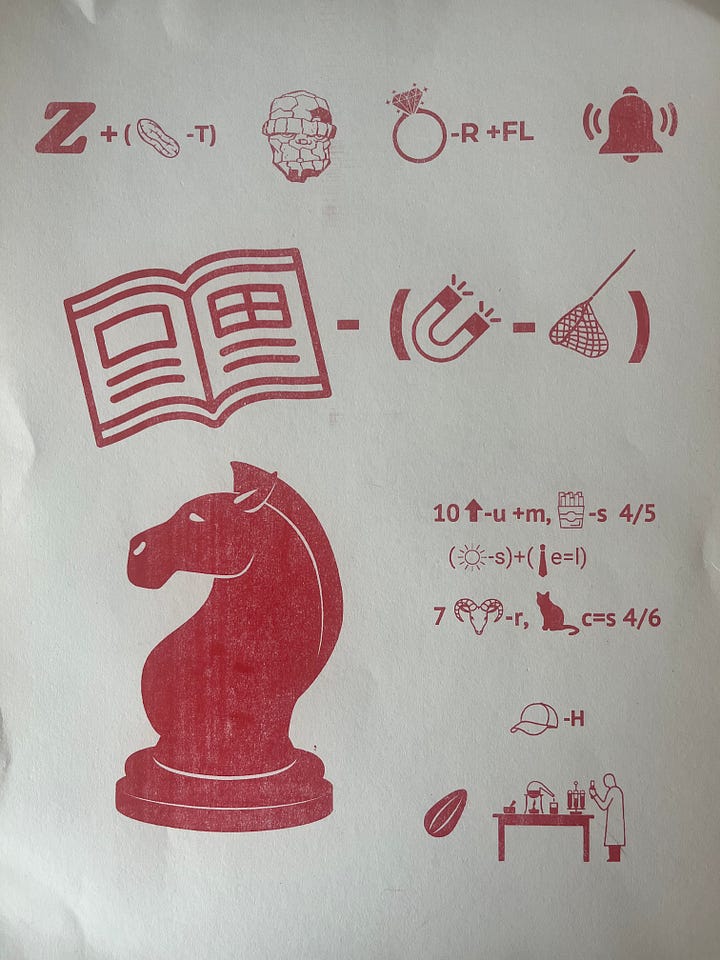 Z + ( -T) -R +FL
- ( - )
10 -u +m, -s 4/5
( -s)+( e=l)
7 -r, c=s 4/6
-H